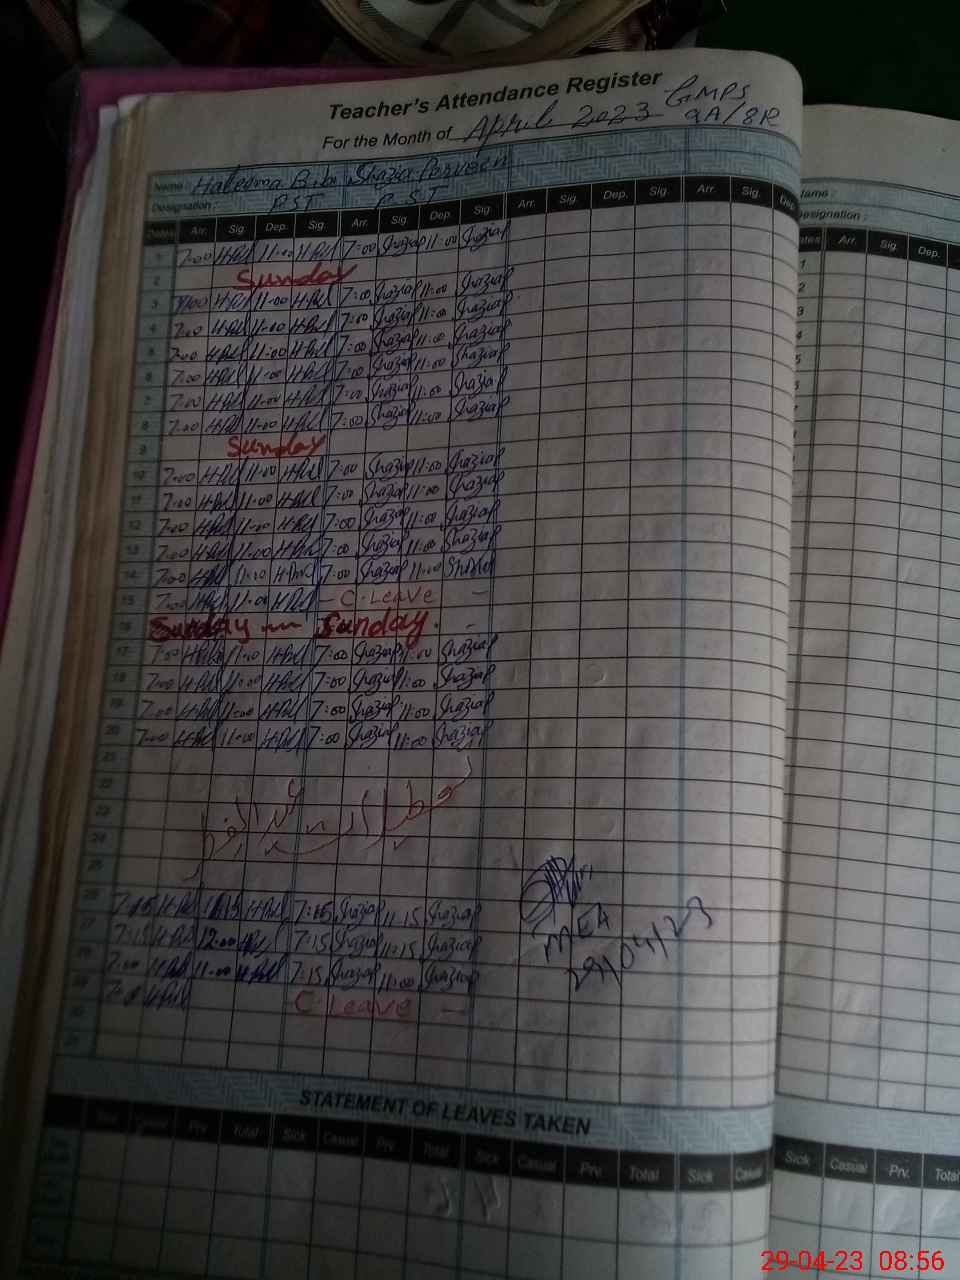 Teacher's Attendance Register
For the Month of April 2023 GMPS
9A/8R
Name : Haleema Bibi Shazia Perveen
Designation : PST PST
Dates Arr. Sig. Dep. Sig. Arr. Sig. Dep. Sig. Arr. Sig. Dep. Sig. Arr. Sig. Dep.
1 7:00 H.Bibi 11:00 H.Bibi 7:00 ShaziaP 11:00 ShaziaP
2 Sunday
3 7:00 H.Bibi 11:00 H.Bibi 7:00 ShaziaP 11:00 ShaziaP
4 7:00 H.Bibi 11:00 H.Bibi 7:00 ShaziaP 11:00 ShaziaP
5 7:00 H.Bibi 11:00 H.Bibi 7:00 ShaziaP 11:00 ShaziaP
6 7:00 H.Bibi 11:00 H.Bibi 7:00 ShaziaP 11:00 ShaziaP
7 7:00 H.Bibi 11:00 H.Bibi 7:00 ShaziaP 11:00 ShaziaP
8 7:00 H.Bibi 11:00 H.Bibi 7:00 ShaziaP 11:00 ShaziaP
9 Sunday
10 7:00 H.Bibi 11:00 H.Bibi 7:00 ShaziaP 11:00 ShaziaP
11 7:00 H.Bibi 11:00 H.Bibi 7:00 ShaziaP 11:00 ShaziaP
12 7:00 H.Bibi 11:00 H.Bibi 7:00 ShaziaP 11:00 ShaziaP
13 7:00 H.Bibi 11:00 H.Bibi 7:00 ShaziaP 11:00 ShaziaP
14 7:00 H.Bibi 11:00 H.Bibi 7:00 ShaziaP 11:00 ShaziaP
15 7:00 H.Bibi 11:00 H.Bibi - C.Leave -
16 Sunday — Sunday. -
17 7:00 H.Bibi 11:00 H.Bibi 7:00 ShaziaP 11:00 ShaziaP
18 7:00 H.Bibi 11:00 H.Bibi 7:00 ShaziaP 11:00 ShaziaP
19 7:00 H.Bibi 11:00 H.Bibi 7:00 ShaziaP 11:00 ShaziaP
20 7:00 H.Bibi 11:00 H.Bibi 7:00 ShaziaP 11:00 ShaziaP
21
22
23
عید الفطر
24
25
26 7:15 H.Bibi 11:15 H.Bibi 7:15 ShaziaP 11:15 ShaziaP
27 7:15 H.Bibi 12:00 H.Bibi 7:15 ShaziaP 11:15 ShaziaP
MEA
28 7:00 H.Bibi 11:00 H.Bibi 7:15 ShaziaP 11:00 ShaziaP
29/04/23
29 7:00 H.Bibi C.Leave —
30
31
STATEMENT OF LEAVES TAKEN
Casual Prv. Total Sick Casual Prv. Total Sick Casual Prv. Total Sick Casual
Name :
Designation :
Dates Arr. Sig. Dep.
1
2
3
4
5
Sick Casual Prv. Total
29-04-23 08:56